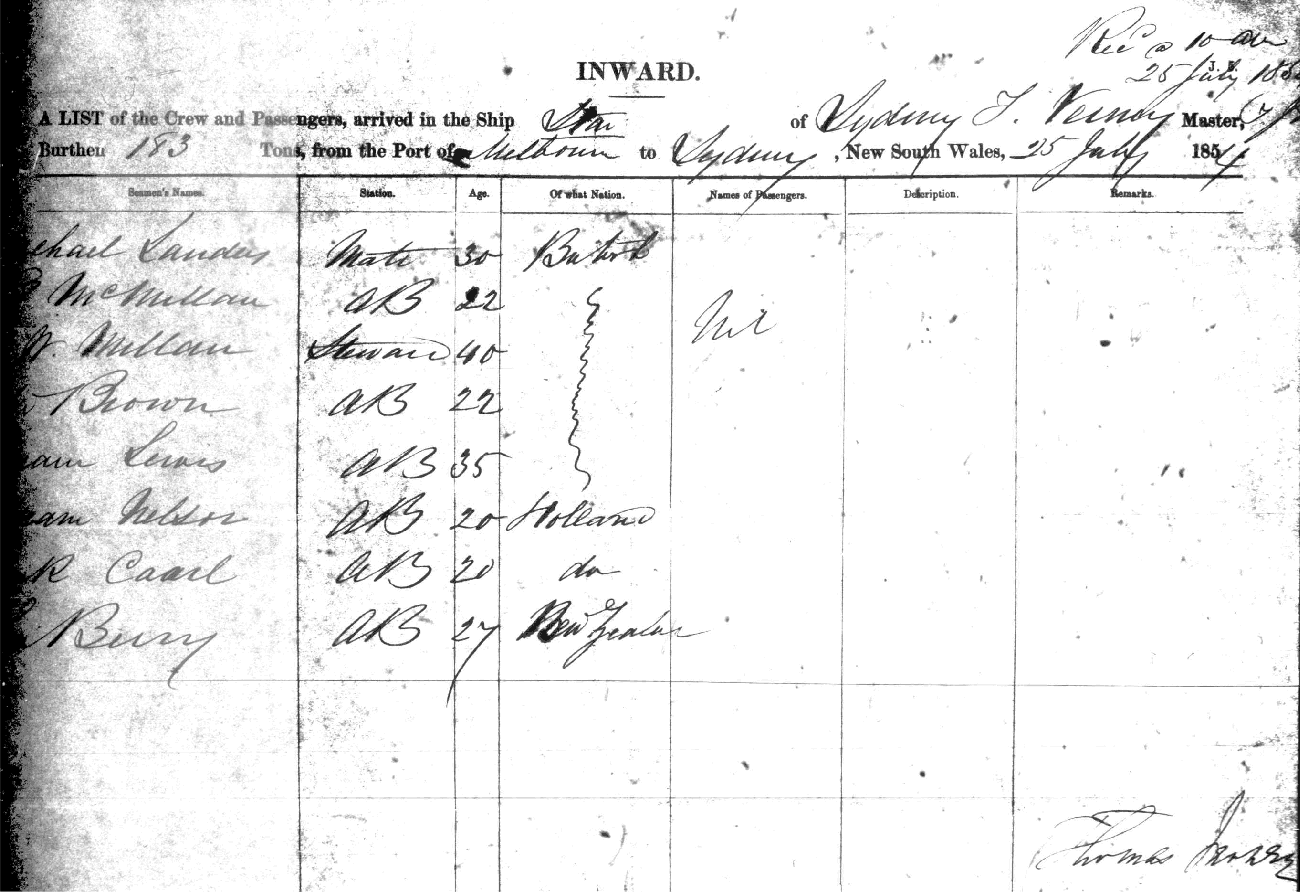 Rec'd @ 10 am
25 July 185
INWARD.
A LIST of the Crew and Passengers, arrived in the Ship Star of Sydney T. Master,
Burthen 183 Tons, from the Port of Melbourn to Sydney, New South Wales, 25 July 1854
Seamen's Names. Station. Age. Of what Nation. Names of Passengers. Description. Remarks.
chael Landers Mate 30 British
McMillan AB 22
W. Millan Steward 40 Nil
Brown AB 22
iam Lewis AB 35
iam Nelson AB 20 Holland
K Caarl AB 20 do
Berry AB 27 New Zealan
Thomas